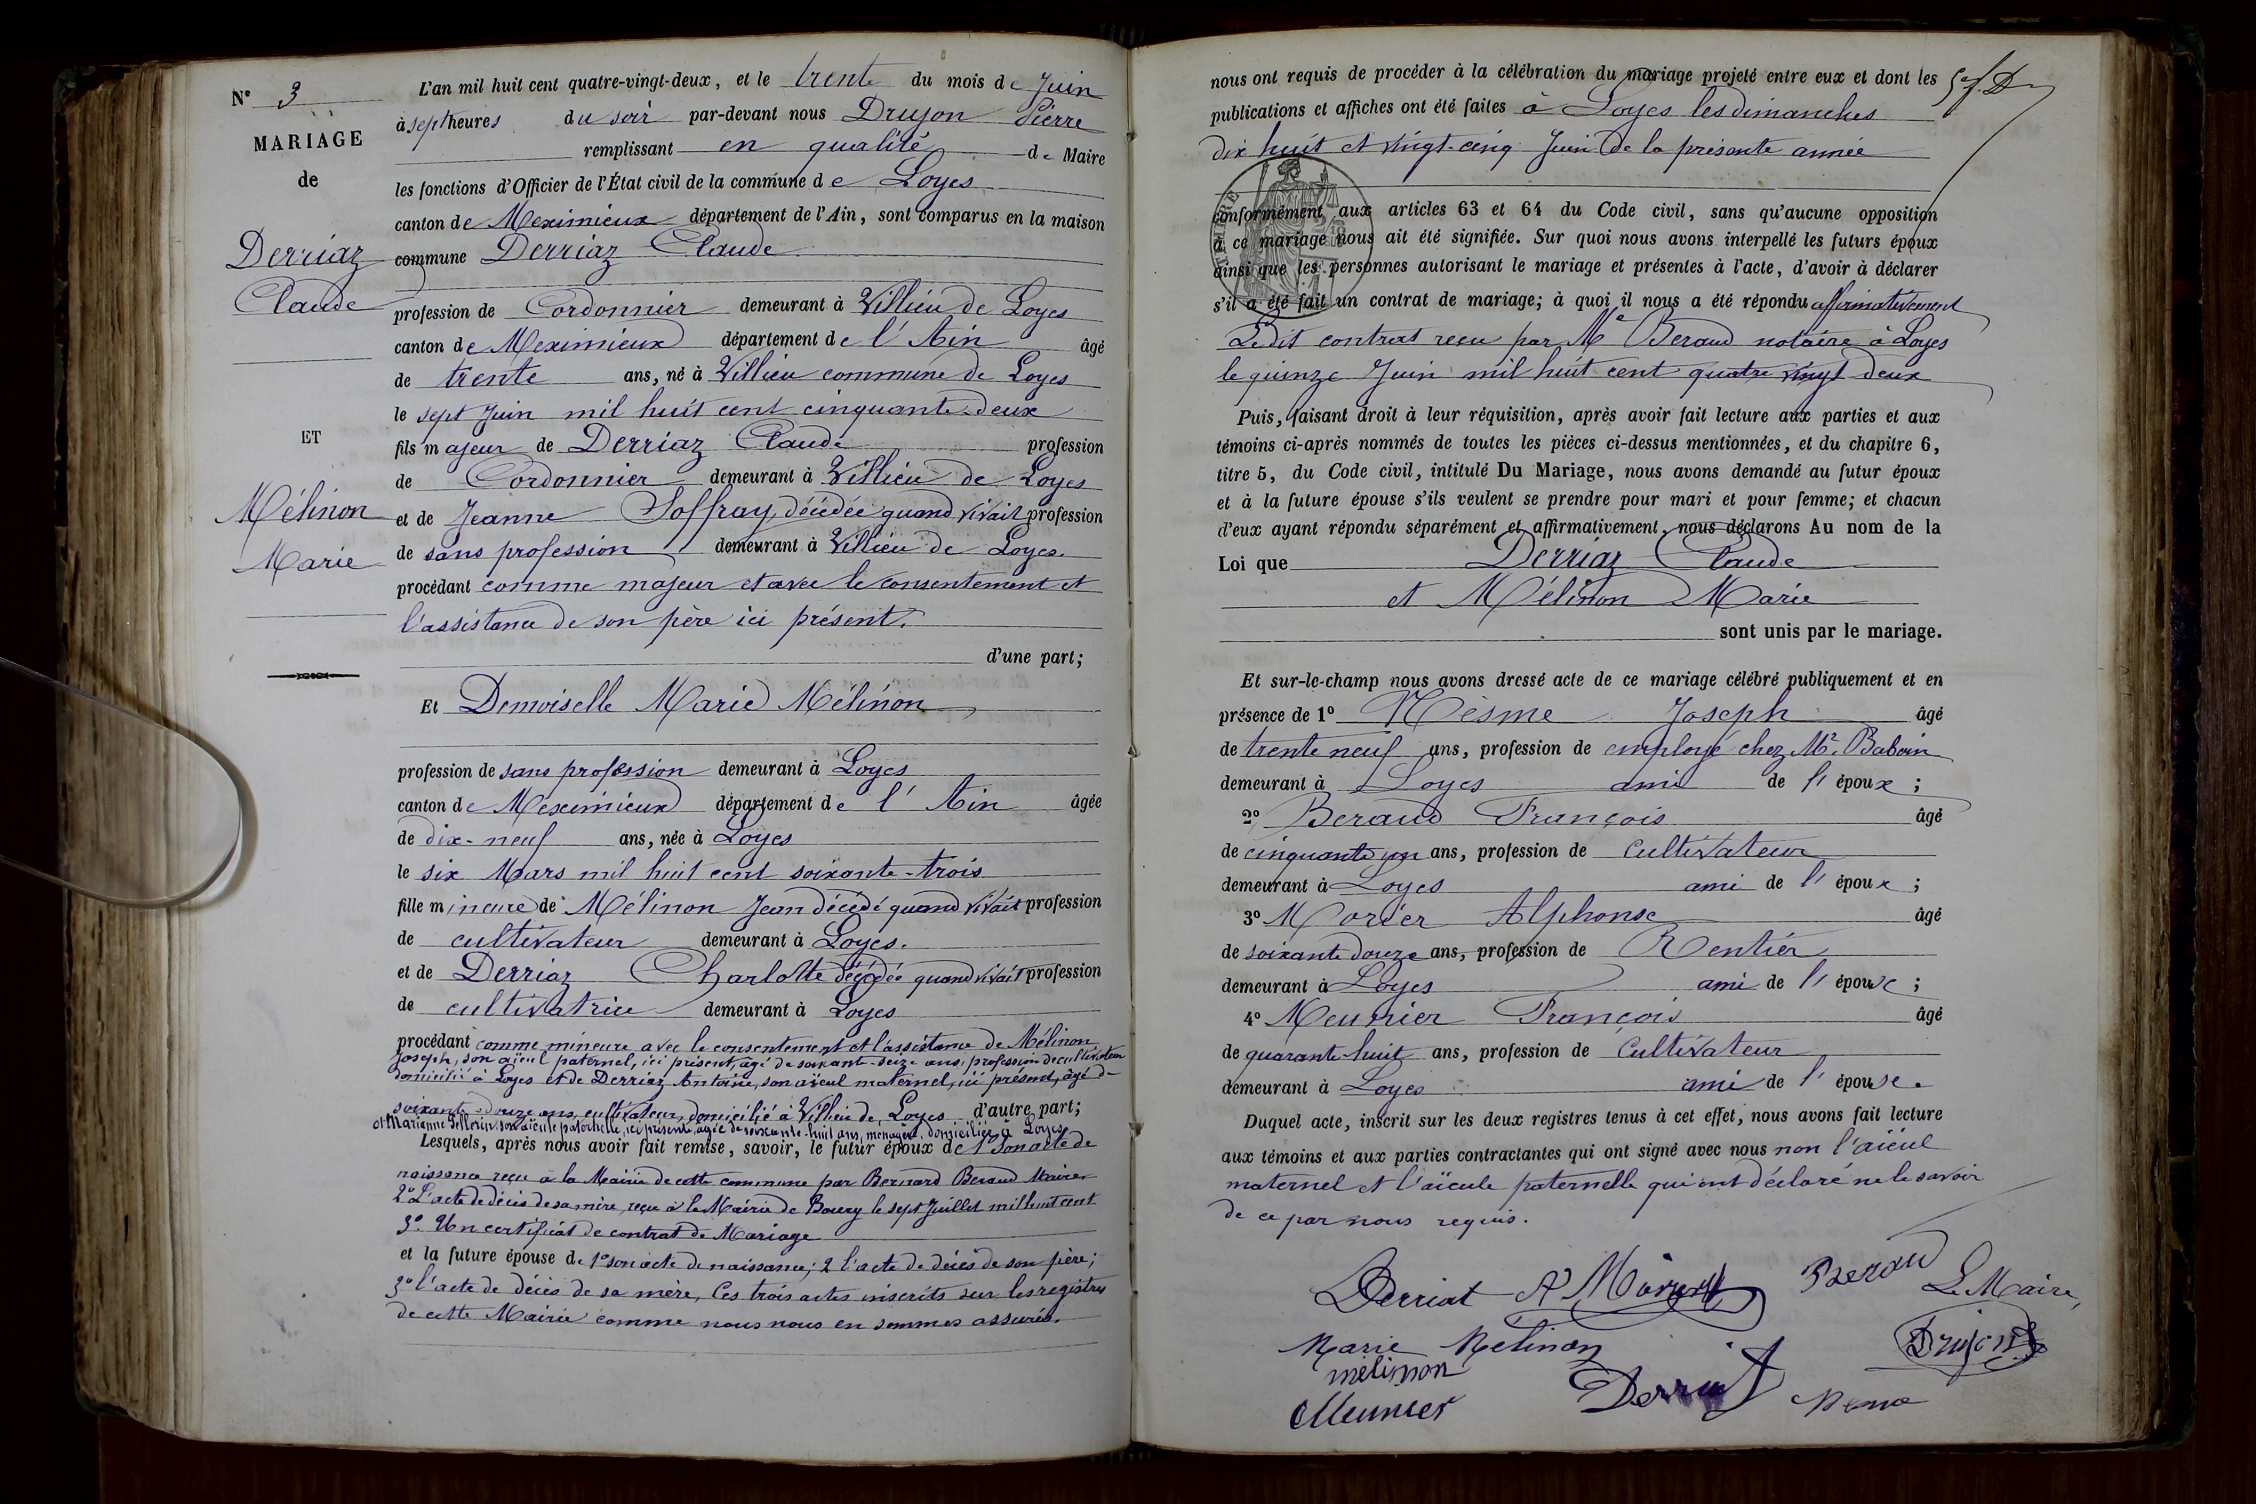 N° 3
MARIAGE
de
Derriaz
Claude
ET
Mélinon
Marie
L'an mil huit cent quatre-vingt-deux, et le trente du mois de Juin
à sept heures du soir par-devant nous Drujon Pierre
remplissant en qualité de Maire
les fonctions d'Officier de l'État civil de la commune de Loyes
canton de Meximieux département de l'Ain, sont comparus en la maison
commune Derriaz Claude
profession de Cordonnier demeurant à Villieu de Loyes
canton de Meximieux département de l'Ain âgé
de trente ans, né à Villieu commune de Loyes
le sept Juin mil huit cent cinquante-deux
fils majeur de Derriaz Claude profession
de Cordonnier demeurant à Villieu de Loyes
et de Jeanne Soffray, décédée quand vivait profession
de sans profession demeurant à Villieu de Loyes.
procédant comme majeur et avec le consentement et
l'assistance de son père ici présent.
d'une part;
Et Demoiselle Marie Mélinon
profession de sans profession demeurant à Loyes
canton de Meximieux département de l'Ain âgée
de dix-neuf ans, née à Loyes
le six Mars mil huit cent soixante-trois
fille mineure de Mélinon Jean décédé quand vivait profession
de cultivateur demeurant à Loyes.
et de Derriaz Charlotte décédée quand vivait profession
de cultivatrice demeurant à Loyes
procédant comme mineure avec le consentement et l'assistance de Mélinon
Joseph, son aïeul paternel, ici présent, âgé de soixante-seize ans, profession de cultivateur
domicilié à Loyes et de Derriaz Antoine, son aïeul maternel, ici présent, âgé de
soixante-douze ans, cultivateur, domicilié à Villieu de Loyes d'autre part;
et Marianne Pellerin son aïeule paternelle, ici présente, âgée de soixante-huit ans, ménagère, domiciliée à Loyes
Lesquels, après nous avoir fait remise, savoir, le futur époux de 1° son acte de
naissance reçu à la Mairie de cette commune par Bernard Beraud Maire
2° L'acte de décès de sa mère, reçu à la Mairie de le sept Juillet mil huit cent
3° Un certificat de contrat de Mariage
et la future épouse de 1° son acte de naissance; 2 l'acte de décès de son père;
3° l'acte de décès de sa mère, Ces trois actes inscrits sur les registres
de cette Mairie comme nous nous en sommes assurés.
nous ont requis de procéder à la célébration du mariage projeté entre eux et dont les
publications et affiches ont été faites à Loyes les dimanches
dix huit et vingt-cinq Juin de la présente année
conformément aux articles 63 et 64 du Code civil, sans qu'aucune opposition
à ce mariage nous ait été signifiée. Sur quoi nous avons interpellé les futurs époux
ainsi que les personnes autorisant le mariage et présentes à l'acte, d'avoir à déclarer
s'il a été fait un contrat de mariage; à quoi il nous a été répondu affirmativement
Ledit contrat reçu par Me Beraud notaire à Loyes
le quinze Juin mil huit cent quatre vingt deux
Puis, faisant droit à leur réquisition, après avoir fait lecture aux parties et aux
témoins ci-après nommés de toutes les pièces ci-dessus mentionnées, et du chapitre 6,
titre 5, du Code civil, intitulé Du Mariage, nous avons demandé au futur époux
et à la future épouse s'ils veulent se prendre pour mari et pour femme; et chacun
d'eux ayant répondu séparément et affirmativement, nous déclarons Au nom de la
Loi que Derriaz Claude
et Mélinon Marie
sont unis par le mariage.
Et sur-le-champ nous avons dressé acte de ce mariage célébré publiquement et en
présence de 1° Mesme Joseph âgé
de trente neuf ans, profession de employé chez Mr. Baboin
demeurant à Loyes ami de l'époux;
2° Beraud François âgé
de cinquante un ans, profession de Cultivateur
demeurant à Loyes ami de l'époux;
3° Morier Alphonse âgé
de soixante douze ans, profession de Rentier
demeurant à Loyes ami de l'épouse;
4° Meunier François âgé
de quarante-huit ans, profession de Cultivateur
demeurant à Loyes ami de l'épouse.
Duquel acte, inscrit sur les deux registres tenus à cet effet, nous avons fait lecture
aux témoins et aux parties contractantes qui ont signé avec nous non l'aïeul
maternel et l'aïeule paternelle qui ont déclaré ne le savoir
de ce par nous requis.
Derriat A Beraud
Le Maire,
Marie Melinon Drujon
mélinon
Meunier Derriat Mesme